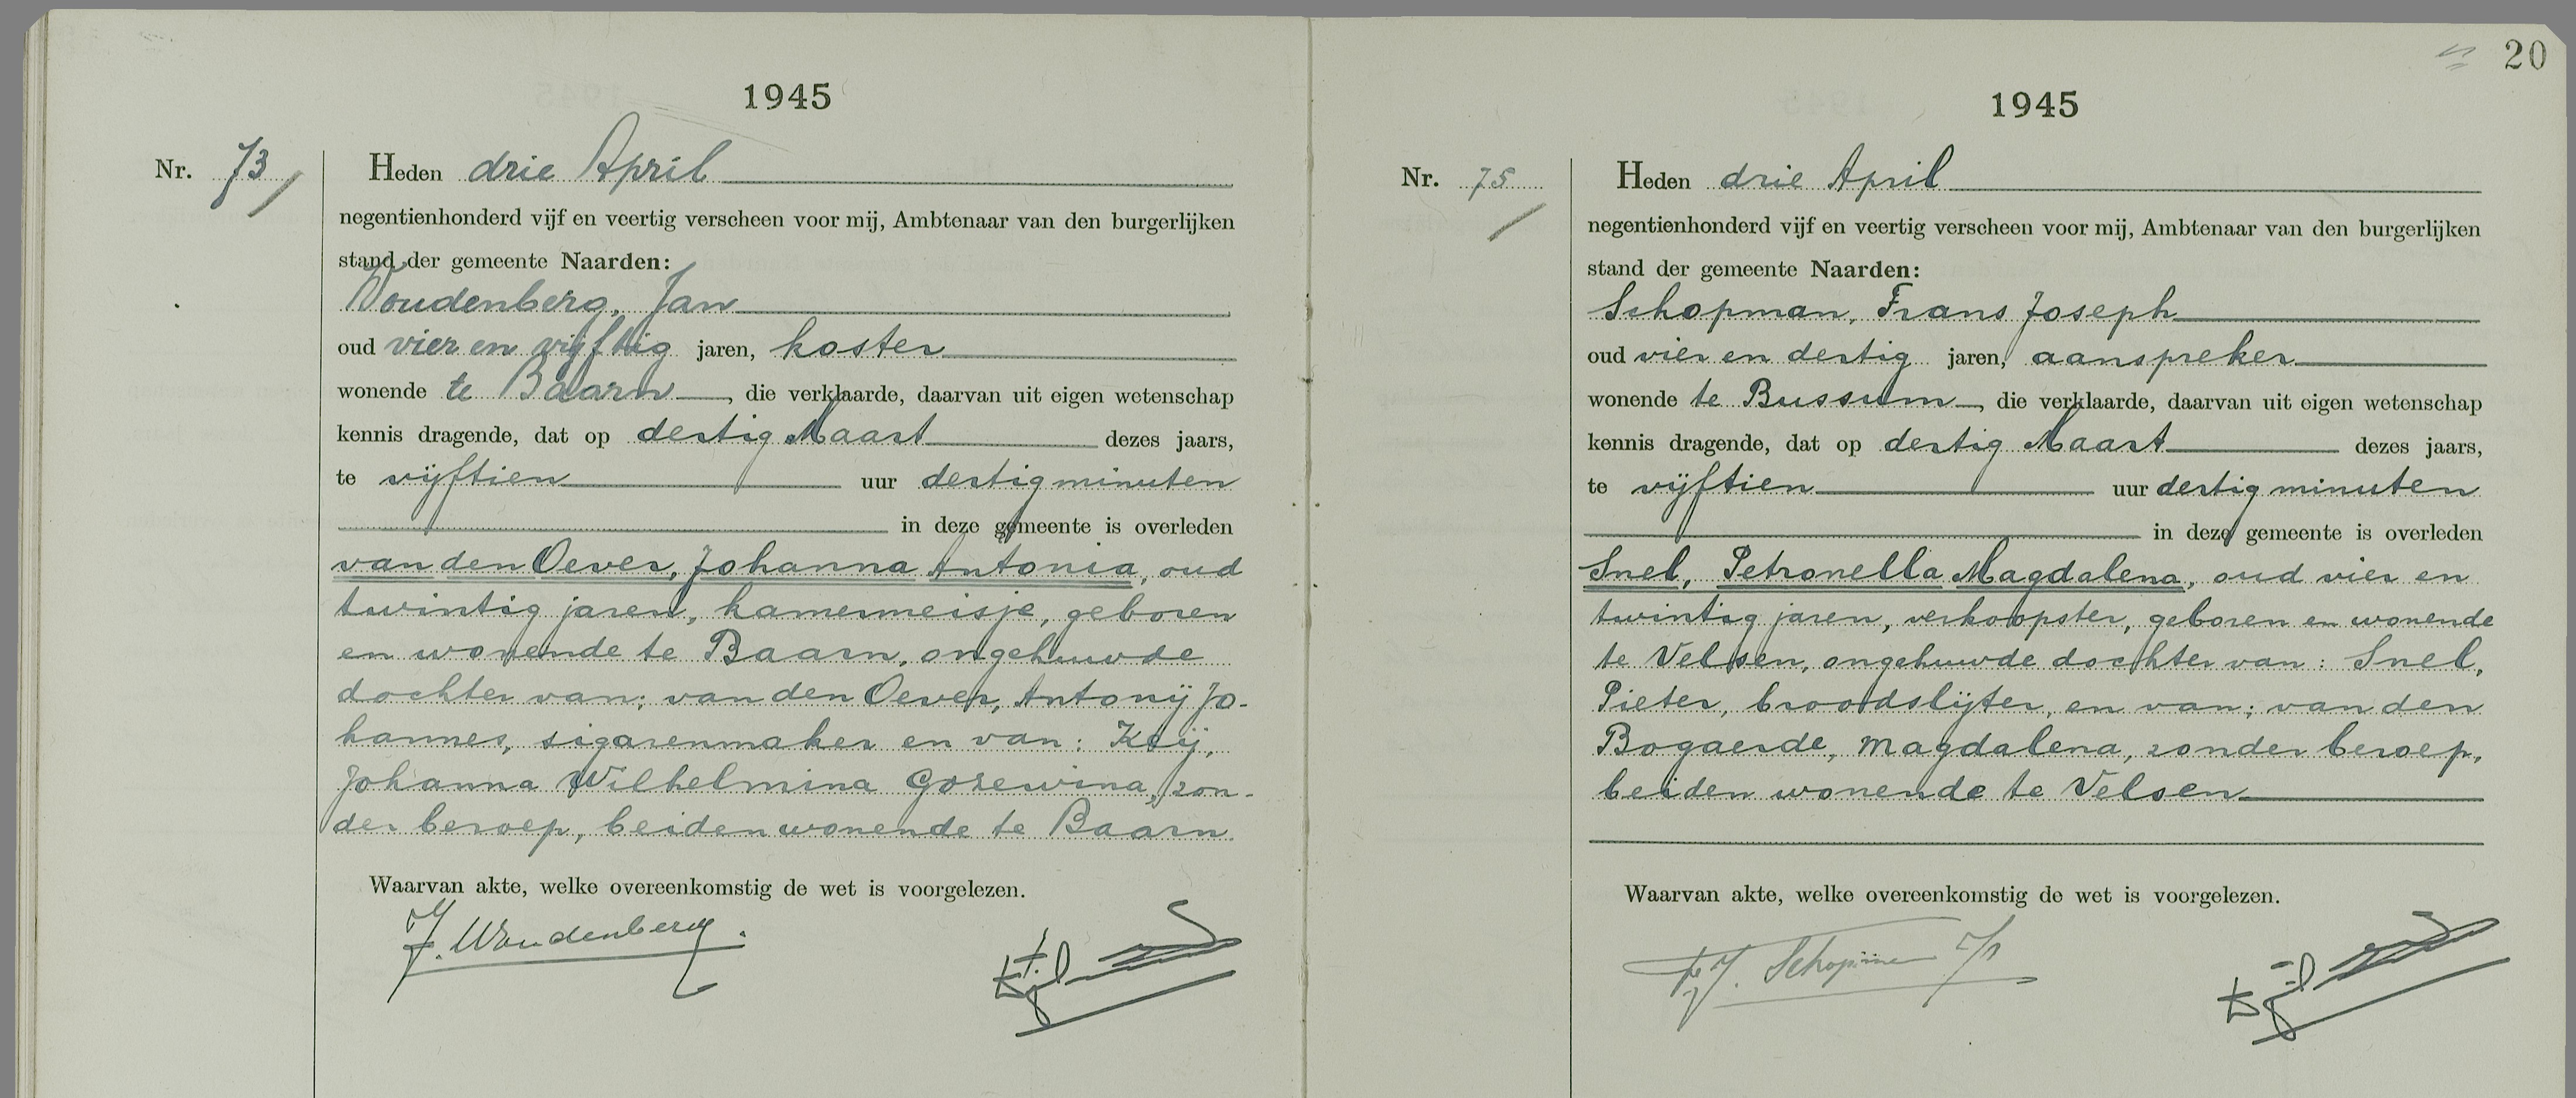 20
1945
Nr. 73
Heden drie April
negentienhonderd vijf en veertig verscheen voor mij, Ambtenaar van den burgerlijken
stand der gemeente Naarden:
Woudenberg, Jan
oud vier en vijftig jaren, koster
wonende te Baarn, die verklaarde, daarvan uit eigen wetenschap
kennis dragende, dat op dertig Maart dezes jaars,
te vijftien uur dertig minuten
in deze gemeente is overleden
van den Oever, Johanna Antonia, oud
twintig jaren, kamermeisje, geboren
en wonende te Baarn, ongehuwde
dochter van: van den Oever, Antonij Jo-
hannes, sigarenmaker en van: Kooij,
Johanna Wilhelmina Gozewina, zon-
der beroep, beiden wonende te Baarn
Waarvan akte, welke overeenkomstig de wet is voorgelezen.
J. Woudenberg.
1945
Nr. 75
Heden drie April
negentienhonderd vijf en veertig verscheen voor mij, Ambtenaar van den burgerlijken
stand der gemeente Naarden:
Schopman, Frans Joseph
oud vier en dertig jaren, aanspreker
wonende te Bussum, die verklaarde, daarvan uit eigen wetenschap
kennis dragende, dat op dertig Maart dezes jaars,
te vijftien uur dertig minuten
in deze gemeente is overleden
Snel, Petronella Magdalena, oud vier en
twintig jaren, verkoopster, geboren en wonende
te Velsen, ongehuwde dochter van: Snel,
Pieter, broodslijter, en van: van den
Bogaerde, Magdalena, zonder beroep,
beiden wonende te Velsen
Waarvan akte, welke overeenkomstig de wet is voorgelezen.
F. J. Schopman